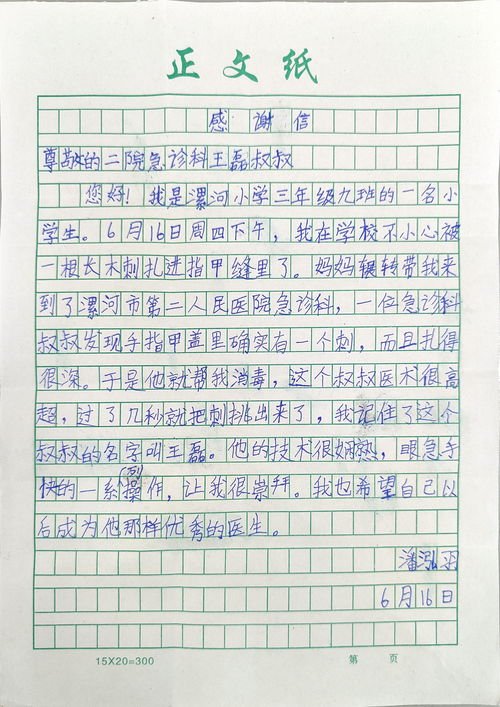 正文纸
感谢信
尊敬的二院急诊科王磊叔叔
您好！我是漯河小学三年级九班的一名小
学生。6月16日周四下午，我在学校不小心被
一根长木刺扎进指甲缝里了。妈妈辗转带我来
到了漯河市第二人民医院急诊科，一位急诊科
叔叔发现手指甲盖里确实有一个刺，而且扎得
很深。于是他就帮我消毒，这个叔叔医术很高
超，过了几秒就把刺挑出来了，我记住了这个
叔叔的名字叫王磊。他的技术很娴熟，眼急手
快的一系列操作，让我很崇拜。我也希望自己以
后成为他那样优秀的医生。
潘泓羽
6月16日
15X20=300 第 页